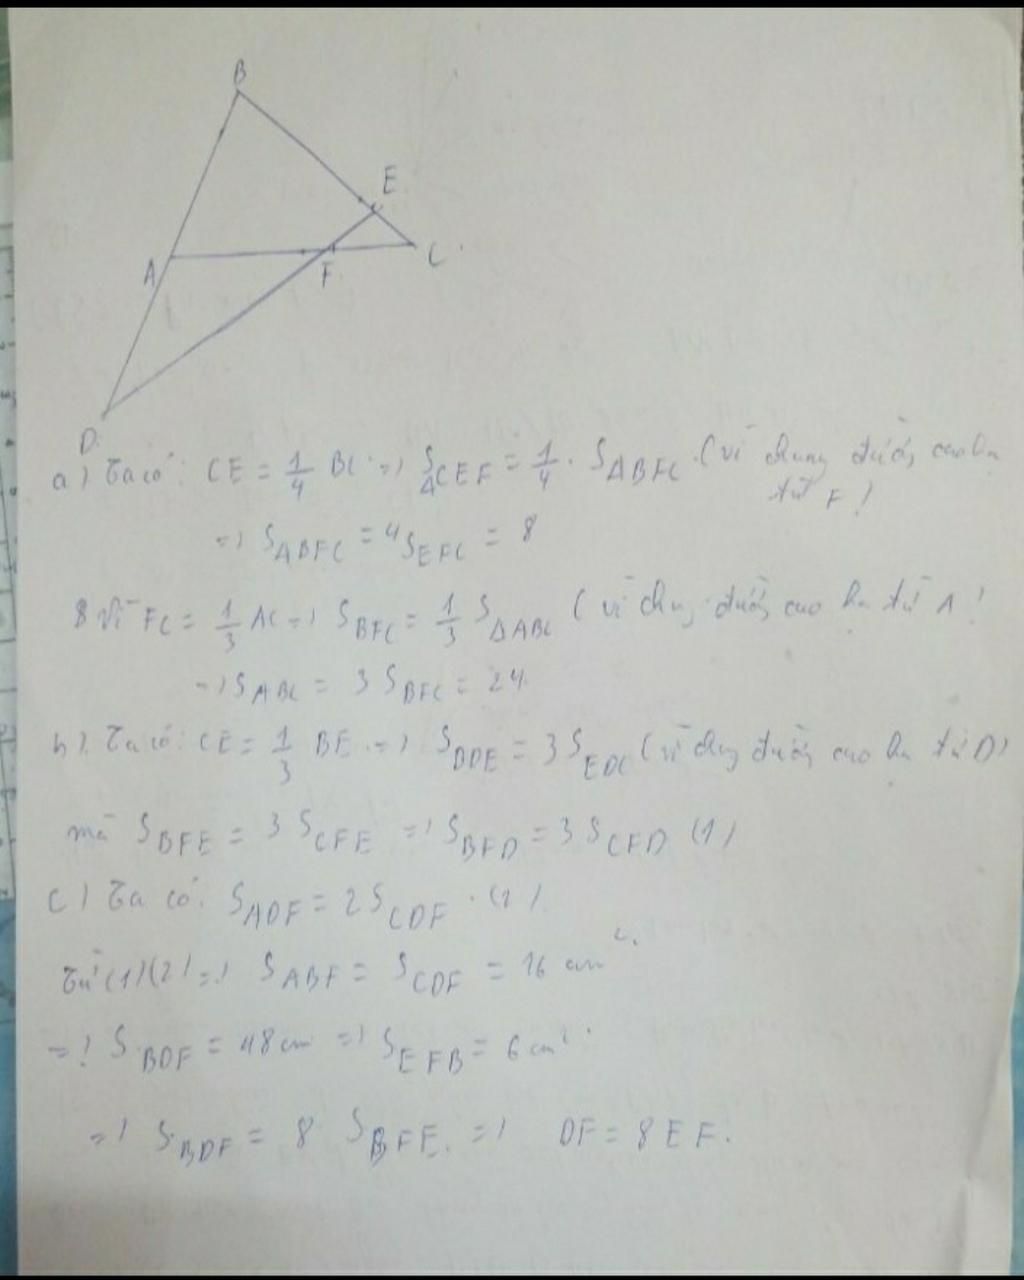 B
E
A
F
C
D
a) Ta có: CE = 1/4 BC => S ΔCEF = 1/4 . SΔBFC (vì chung đường cao hạ từ F)
=> SΔBFC = 4SEFC = 8
& Vì FC = 1/3 AC => SBFC = 1/3 SΔABC (vì chung đường cao hạ từ A)
=> SABC = 3 SBFC = 24.
b) Ta có: CE = 1/3 BE => SBDE = 3SEDC (vì chung đường cao hạ từ D)
mà SBFE = 3 SCFE => SBFD = 3SCFD (1)
c) Ta có: SADF = 2SCDF . (2)
Từ (1)(2) => SABF = SCDF = 16 cm².
=> SBDF = 48 cm => SEFB = 6 cm².
=> SBDF = 8 SBFE. => DF = 8EF.